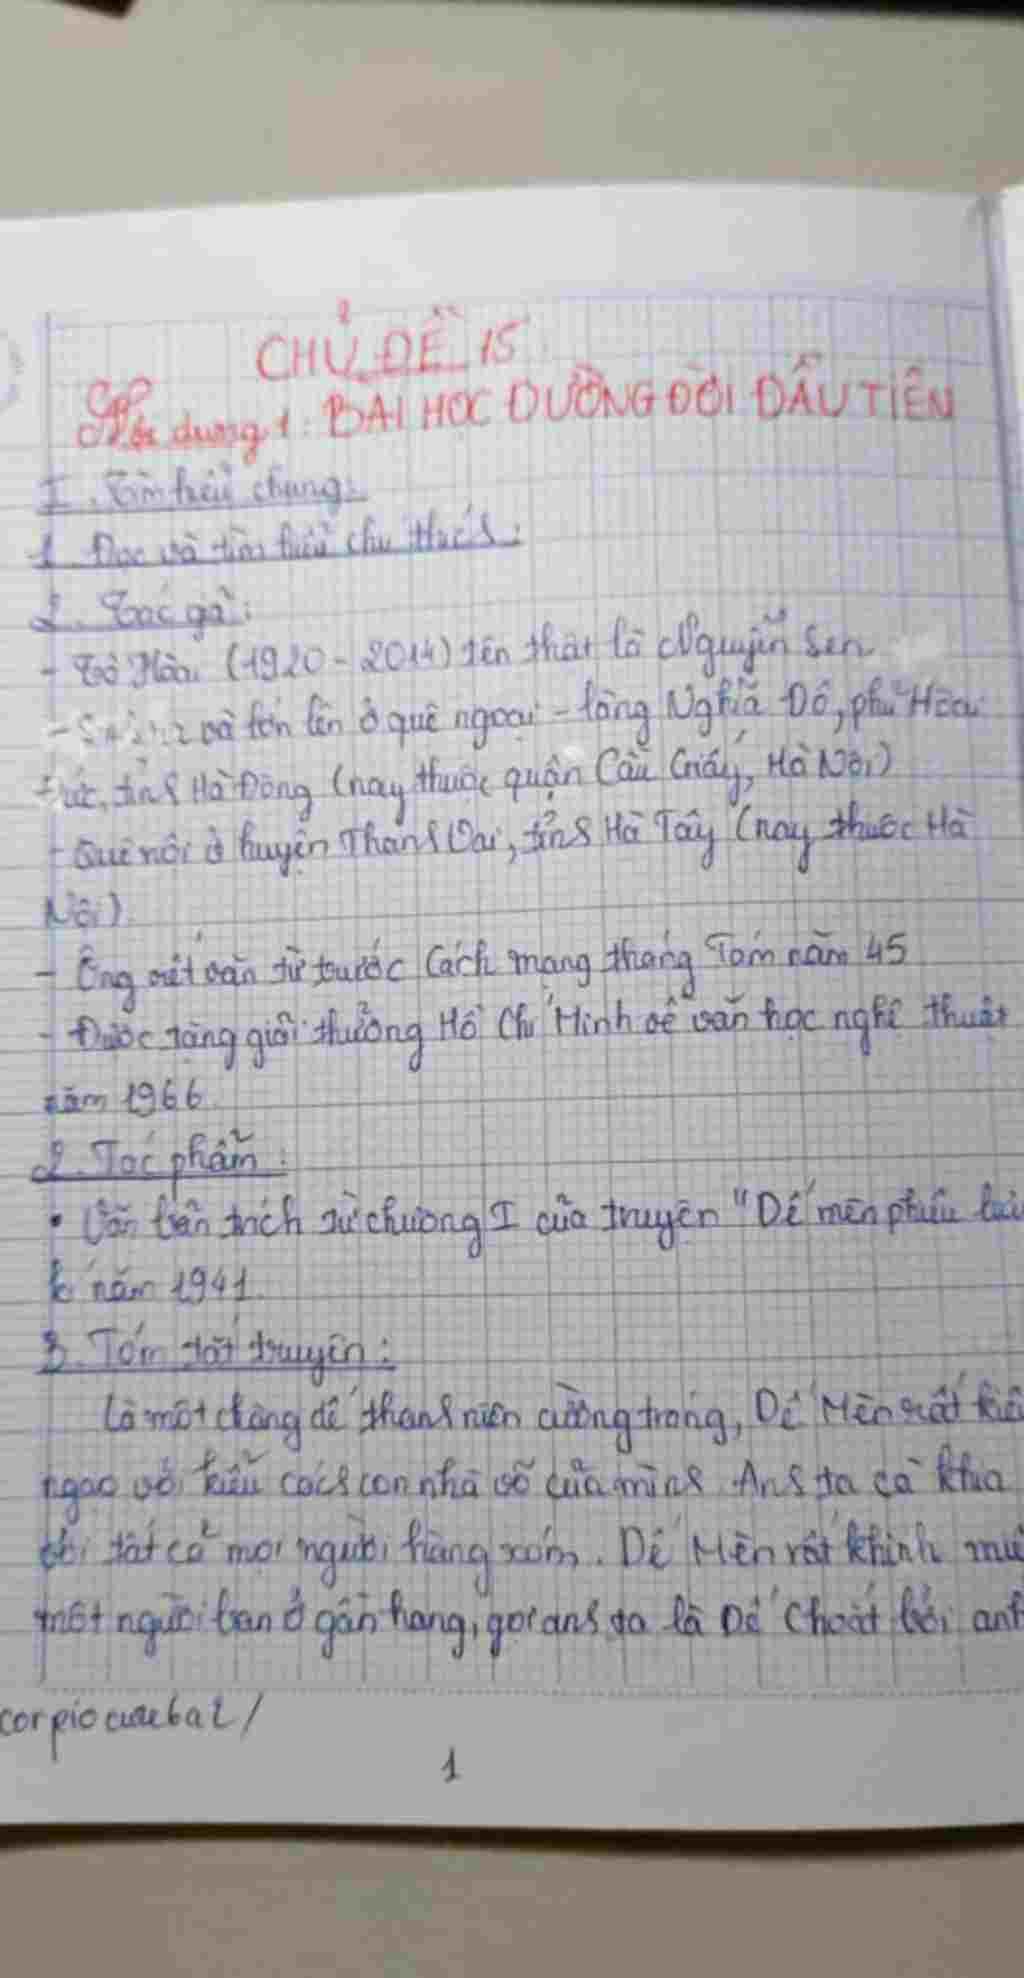 CHỦ ĐỀ 15
Nội dung 1: BÀI HỌC ĐƯỜNG ĐỜI ĐẦU TIÊN
I. Tìm hiểu chung:
1. Đọc và tìm hiểu chú thích:
2. Tác giả:
- Tô Hoài (1920-2014) tên thật là Nguyễn Sen
- Sinh ra và lớn lên ở quê ngoại - làng Nghĩa Đô, phủ Hoài
Đức, tỉnh Hà Đông (nay thuộc quận Cầu Giấy, Hà Nội)
- Quê nội ở huyện Thanh Oai, tỉnh Hà Tây (nay thuộc Hà
Nội)
- Ông viết văn từ trước Cách mạng tháng Tám năm 45
- Được tặng giải thưởng Hồ Chí Minh về văn học nghệ thuật
năm 1966
2. Tác phẩm:
• Văn bản trích từ chương I của truyện "Dế mèn phiêu lưu
kí năm 1941.
3. Tóm tắt truyện:
Là một chàng dế thanh niên cường tráng, Dế Mèn rất kiêu
ngạo với kiểu cách con nhà võ của mình. Anh ta cà khịa
với tất cả mọi người hàng xóm. Dế Mèn rất khinh
một người bạn ở gần hang, gọi anh ta là Dế Choắt bởi anh
corpio
1